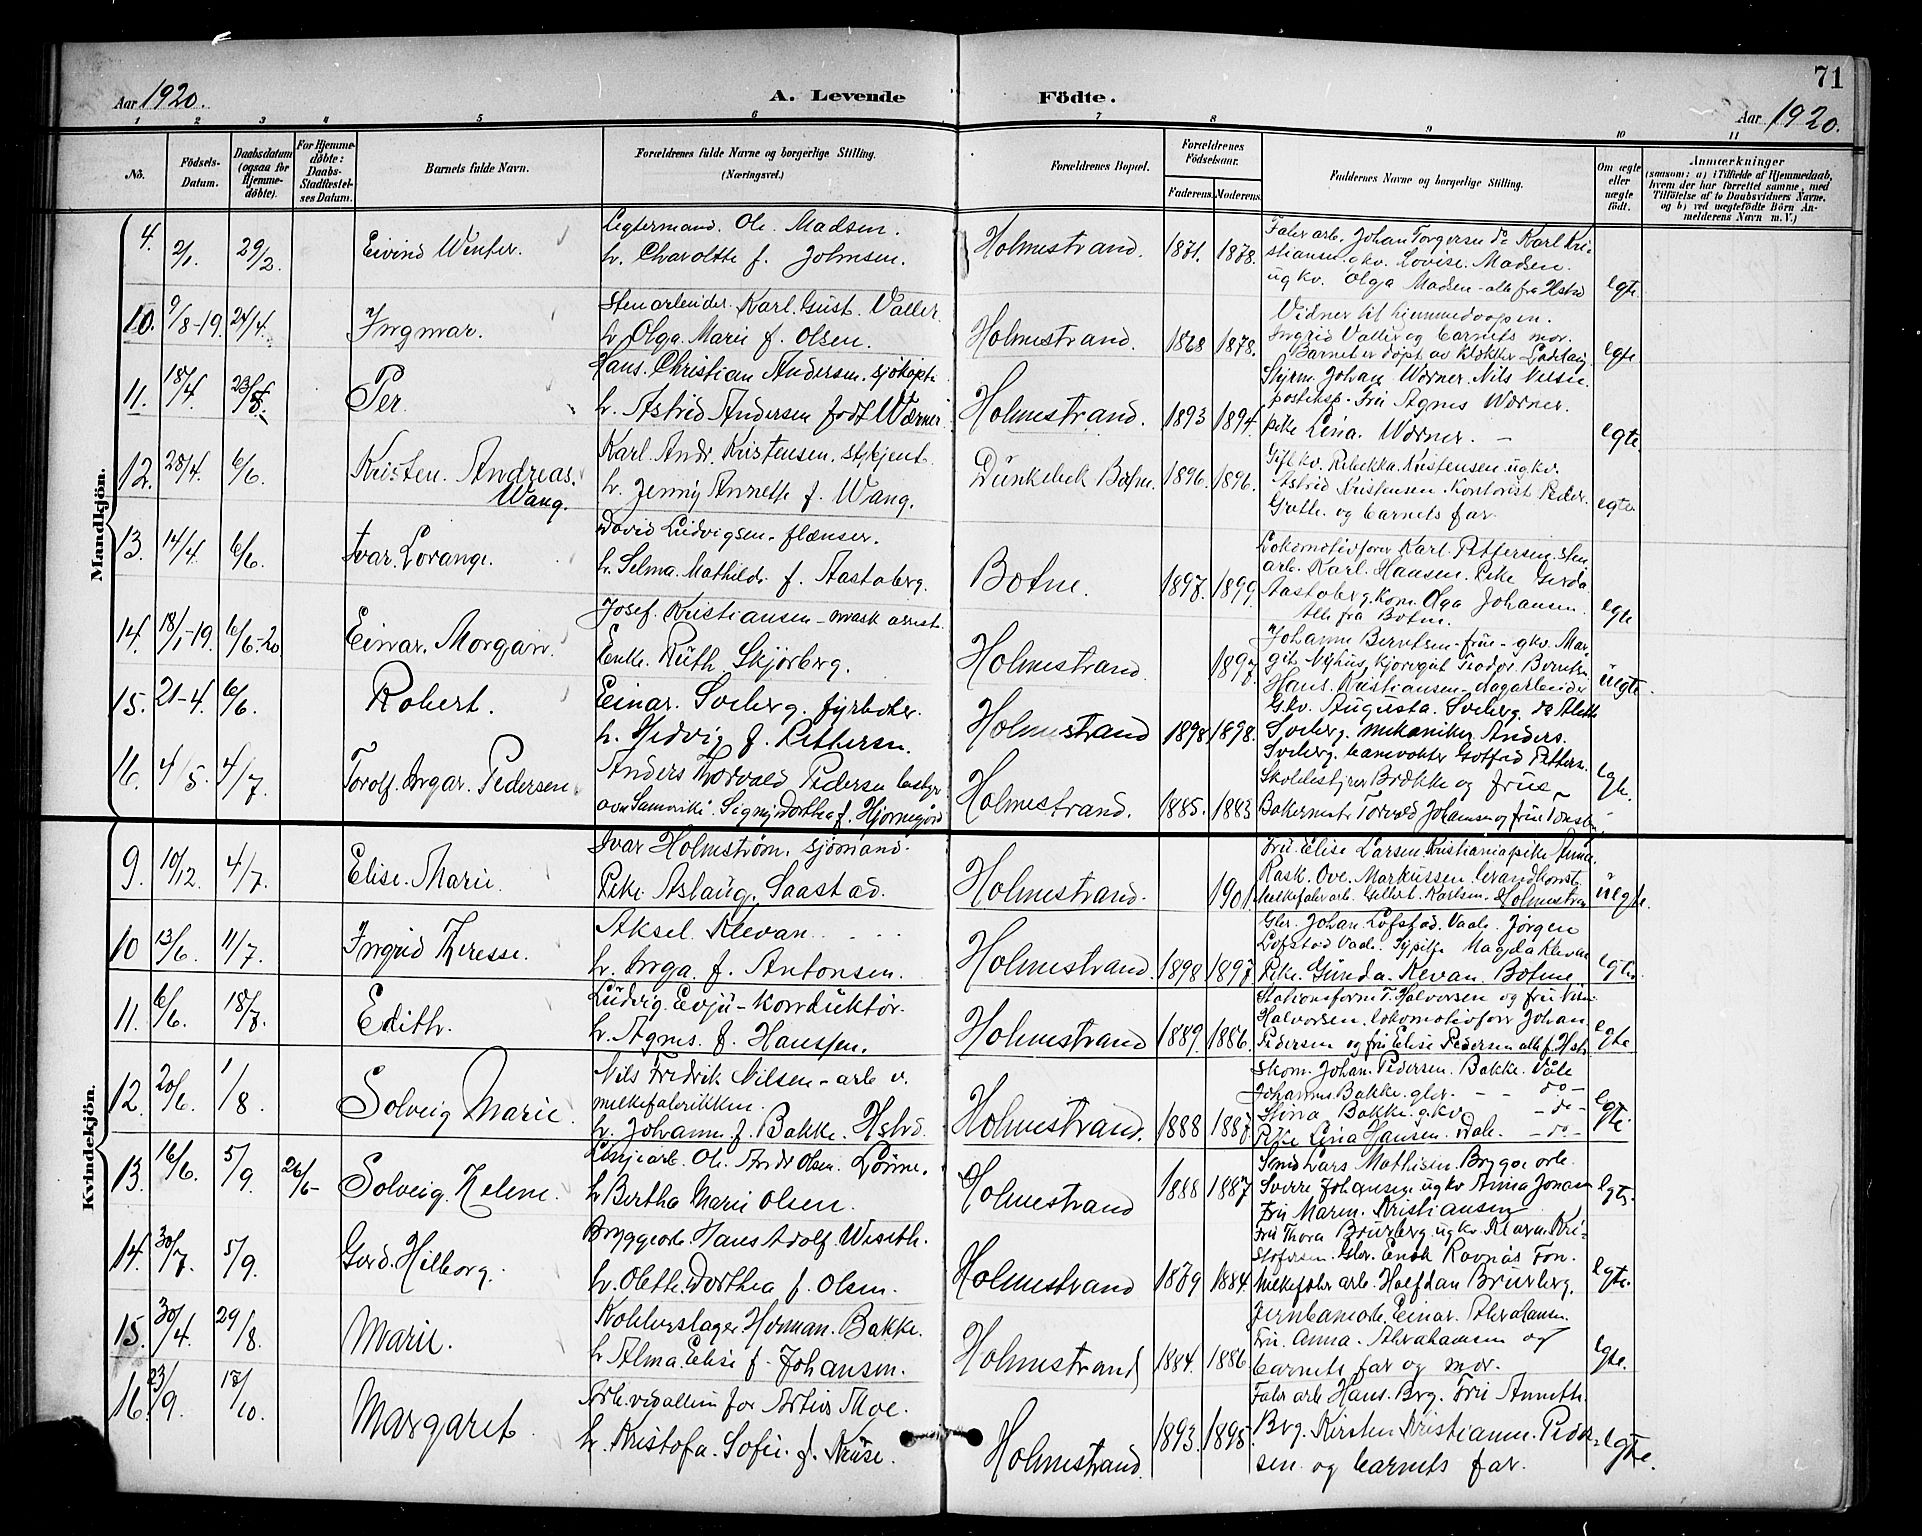 71
Aar 1920.
A. Levende Födte.
Aar 1920.
1 2 3 4 5 6 7 8 9 10 11
No.
Födsels-Datum.
Daabsdatum (ogsaa for Hjemme-döbte).
For Hjemme-döbte: Daabs-Stadfæstel-ses Datum.
Barnets fulde Navn.
Forældrenes fulde Navne og borgerlige Stilling. (Næringsvei.)
Forældrenes Bopæl.
Forældrenes Födselsaar.
Faderens. Moderens.
Faddernes Navne og borgerlige Stilling.
Om ægte eller uægte födt.
Anmærkninger
(saasom: a) i Tilfælde af Hjemmedaab, hvem der har forrettet samme, med Tilföielse af to Daabsvidners Navne, og b) ved uægtefödte Börn An-melderens Navn m. V.)
Mandkjön.
4. 2/1. 29/2. Eivind Winter.
Ole Madsen.
h. Charoltte f. Johnsen.
Holmestrand. 1871. 1878.
Fabr arb. Johan Torgersen do Karl Kri-
stiansen. gkv. Lovise. Madsen.
ug kv. Olga Madsen - alle fra Hstrd
egte
10. 9/8-19. 24/4. Ingmar.
Stenarbeider. Karl. Gust. Valler.
h. Olga Marie f. Olsen.
Holmestrand. 1868 1878.
Vidner til hjemmedaapen.
Ingrid Valler og barnets mor.
Barnet er døpt av klokker
egte
11. 18/4. 23/5. Per.
Hans. Christian Andersen. sjökapt.
h. Astrid Andersen födt Wærner
Holmestrand. 1893 1894.
Johan Wörner. Nils Nilsen
posteksp. Fru Agnes Wörner.
pike Lina. Wörner. -
egte
12. 28/4. 6/6. Kristen. Andreas. Wang.
Karl. Andr. Kristensen. stkjent.
h. Jenny Annette f. Wang.
Dünkebek Botne. 1896. 1896.
Gift kv. Rebekka. Kristensen. ug kv.
Astrid Kristensen. Kontorist Peder.
og barnets far
egte.
13. 14/4. 6/6. Ivar. Lorange.
David Ludvigsen - flænser.
h. Selma. Mathilde f. Aastaberg.
Botne. 1897. 1899.
Lokomotivfører Karl. Pettersen. sten
arb. Karl. Hansen. Pike Gerda
Aastoberg. Kone. Olga Johansen.
Alle fra Botne.
egte
14. 18/1-19. 6/6-20 Einar. Morgan.
Josef. Kristiansen - mask assist.
Enke. Ruth Skjørberg.
Holmestrand. 1897.
Johanne Berntsen - frue - gkv. Mar-
git. Nyhus, Teodor Berntsen
Hans. Kristiansen - dagarbeider
uegte.
15. 21-4. 6/6. Robert.
Einar. Sveberg. fyrbøter.
h. Hedvig f. Pettersen.
Holmestrand 1898 1898.
Gkv. Augusta. Sveberg. do Alette
Sveberg. mekaniker. Anders.
Sveberg. banevokter Gotfred Pettersen.
egte.
16. 4/5. 4/7. Torolf. Ingar. Pedersen
Anders Thorvald Pedersen bestyr
av Signy Dorthea f. Hjørnegård
Holmestrand. 1885. 1883
Skolebestyrer Brække og frue
Bakermstr Torvald Johansen og frue Tønsberg
Kvindekjön.
9. 10/12. 4/7. Elise. Marie.
Ivar Holmstrøm. sjømand.
Pike Aslaug. Saastad.
Holmestrand. 1901.
Fru. Elise Larsen. Kristiania pike Anna.
Rask. Ove. Markussen. brandkonst.
Melkefabr arb. Gilbert Karlsen. Holmestran
uegte.
10 13/6. 11/7. Ingrid Therese.
Aksel. Klevan
h. Inga. f. Antonsen.
Holmestrand. 1898 1897
Gbr. Johan. Löfstad. Vaale. Jörgen
Löfstad Vaale. Sypike Magda Klevan
Pike. Gunda. Kevan. Botne
egte
11. 6/6. 18/7. Edith.
Ludvig. Evju - Konduktör.
h. Agnes. f. Hanssen.
Holmestrand 1889. 1886.
Stationsform T. Halvorsen og fru
Halvorsen. lokomotivfører Johan
Pedersen og fru Elise Pedersen alle f. Hstr
egte
12. 20/6. 1/8. Solveig Marie.
Nils Fredrik Nilsen - arb v.
melkefabrikken.
h. Johanne. f. Bakke. Hstrd.
Holmestrand. 1888 1887.
Skom. Johan. Pedersen. Bakke. Våle
Johannes. Bakke. gbr. - - do -
Stina Bakke. gkv - do -
Pike Lina Hansen. - do. -
egte.
13. 16/6. 5/9. 26/6- Solveig. Helene.
Linjearb. Ole Andr Olsen.
h. Bertha Marie Olsen.
Holmestrand 1888 1887
Lars Mathisen. Brygge arb.
Sverre Johansen. ug kv Anna Jonasen
Fru Maren. Kristiansen
egte.
14. 30/7. 5/9. Gerd. Hilborg.
Bryggearb. Hans Adolf. Wiseth.
h. Olette. Dorthea f. Olsen.
Holmestrand 1879 1884.
Fru Thora Bruserberg. ug kv. Maren. Kri-
stofersen. Gbr. Enok Ravnås Fon.
Melkefabr arb. Halfdan Bruserberg.
egte.
15. 30/4. 29/8. Marie.
Kobberslager. Herman. Bakke.
h. Alma. Elise f. Johansen.
Holmestrand 1884. 1886
Jernbanearb. Einar. Abrahamsen.
Fru. Anna. Abrahamsen og
barnets far og mor.
egte.
16. 23/9. 17/10. Margaret.
Arb. Artur Moe.
h. Kristofa. Sofie. f. Kruse.
Holmestrand. 1893. 1895.
Fabr arb Hans. Berg. Fru Annette
Berg. Kirsten Kristianne. Peder-
sen og barnets far.
egte.